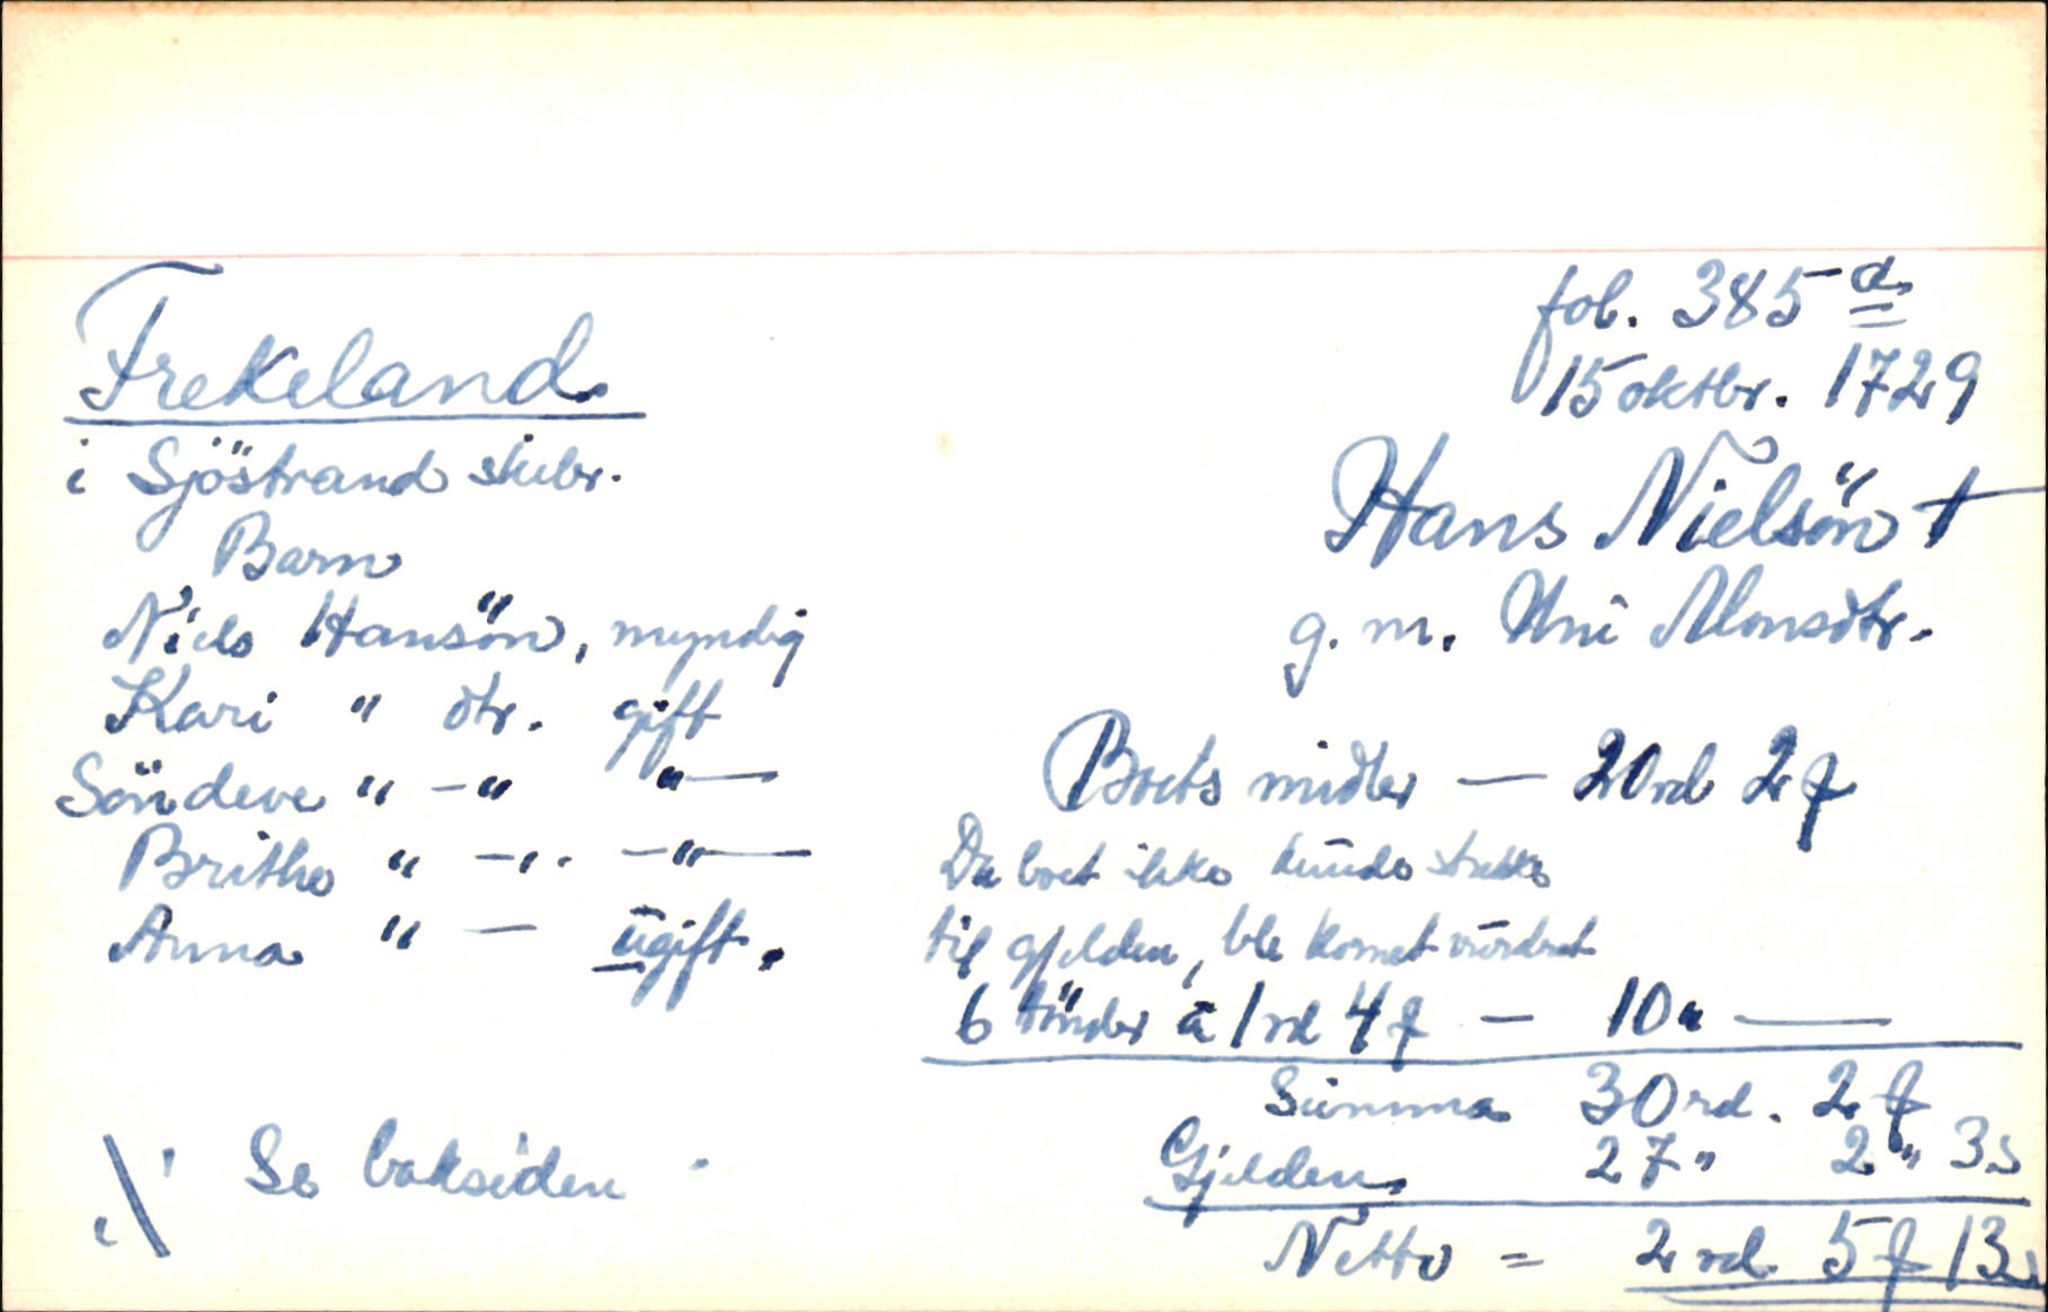 fol. 385 a
15 oktbr. 1729
Frekeland
i Sjöstrand skibr.
Hans Nielsön †
g. m. Uni Monsdtr.
Barn
Niels Hansön, myndig
Kari " dtr. gift
Söndeve " - " " —
Brithe " - " - " —
Anna " — ugift.
Boets midler — 20 rd 2 f
Da boet ikke kunde strekke
til gjelden, ble kornet vurdert
6 tönder a 1 rd 4 f — 10 " —
Summa 30 rd. 2 f
Gjelden 27 " 2 " 3 s
Netto = 2 rd 5 f 13 s
Se baksiden